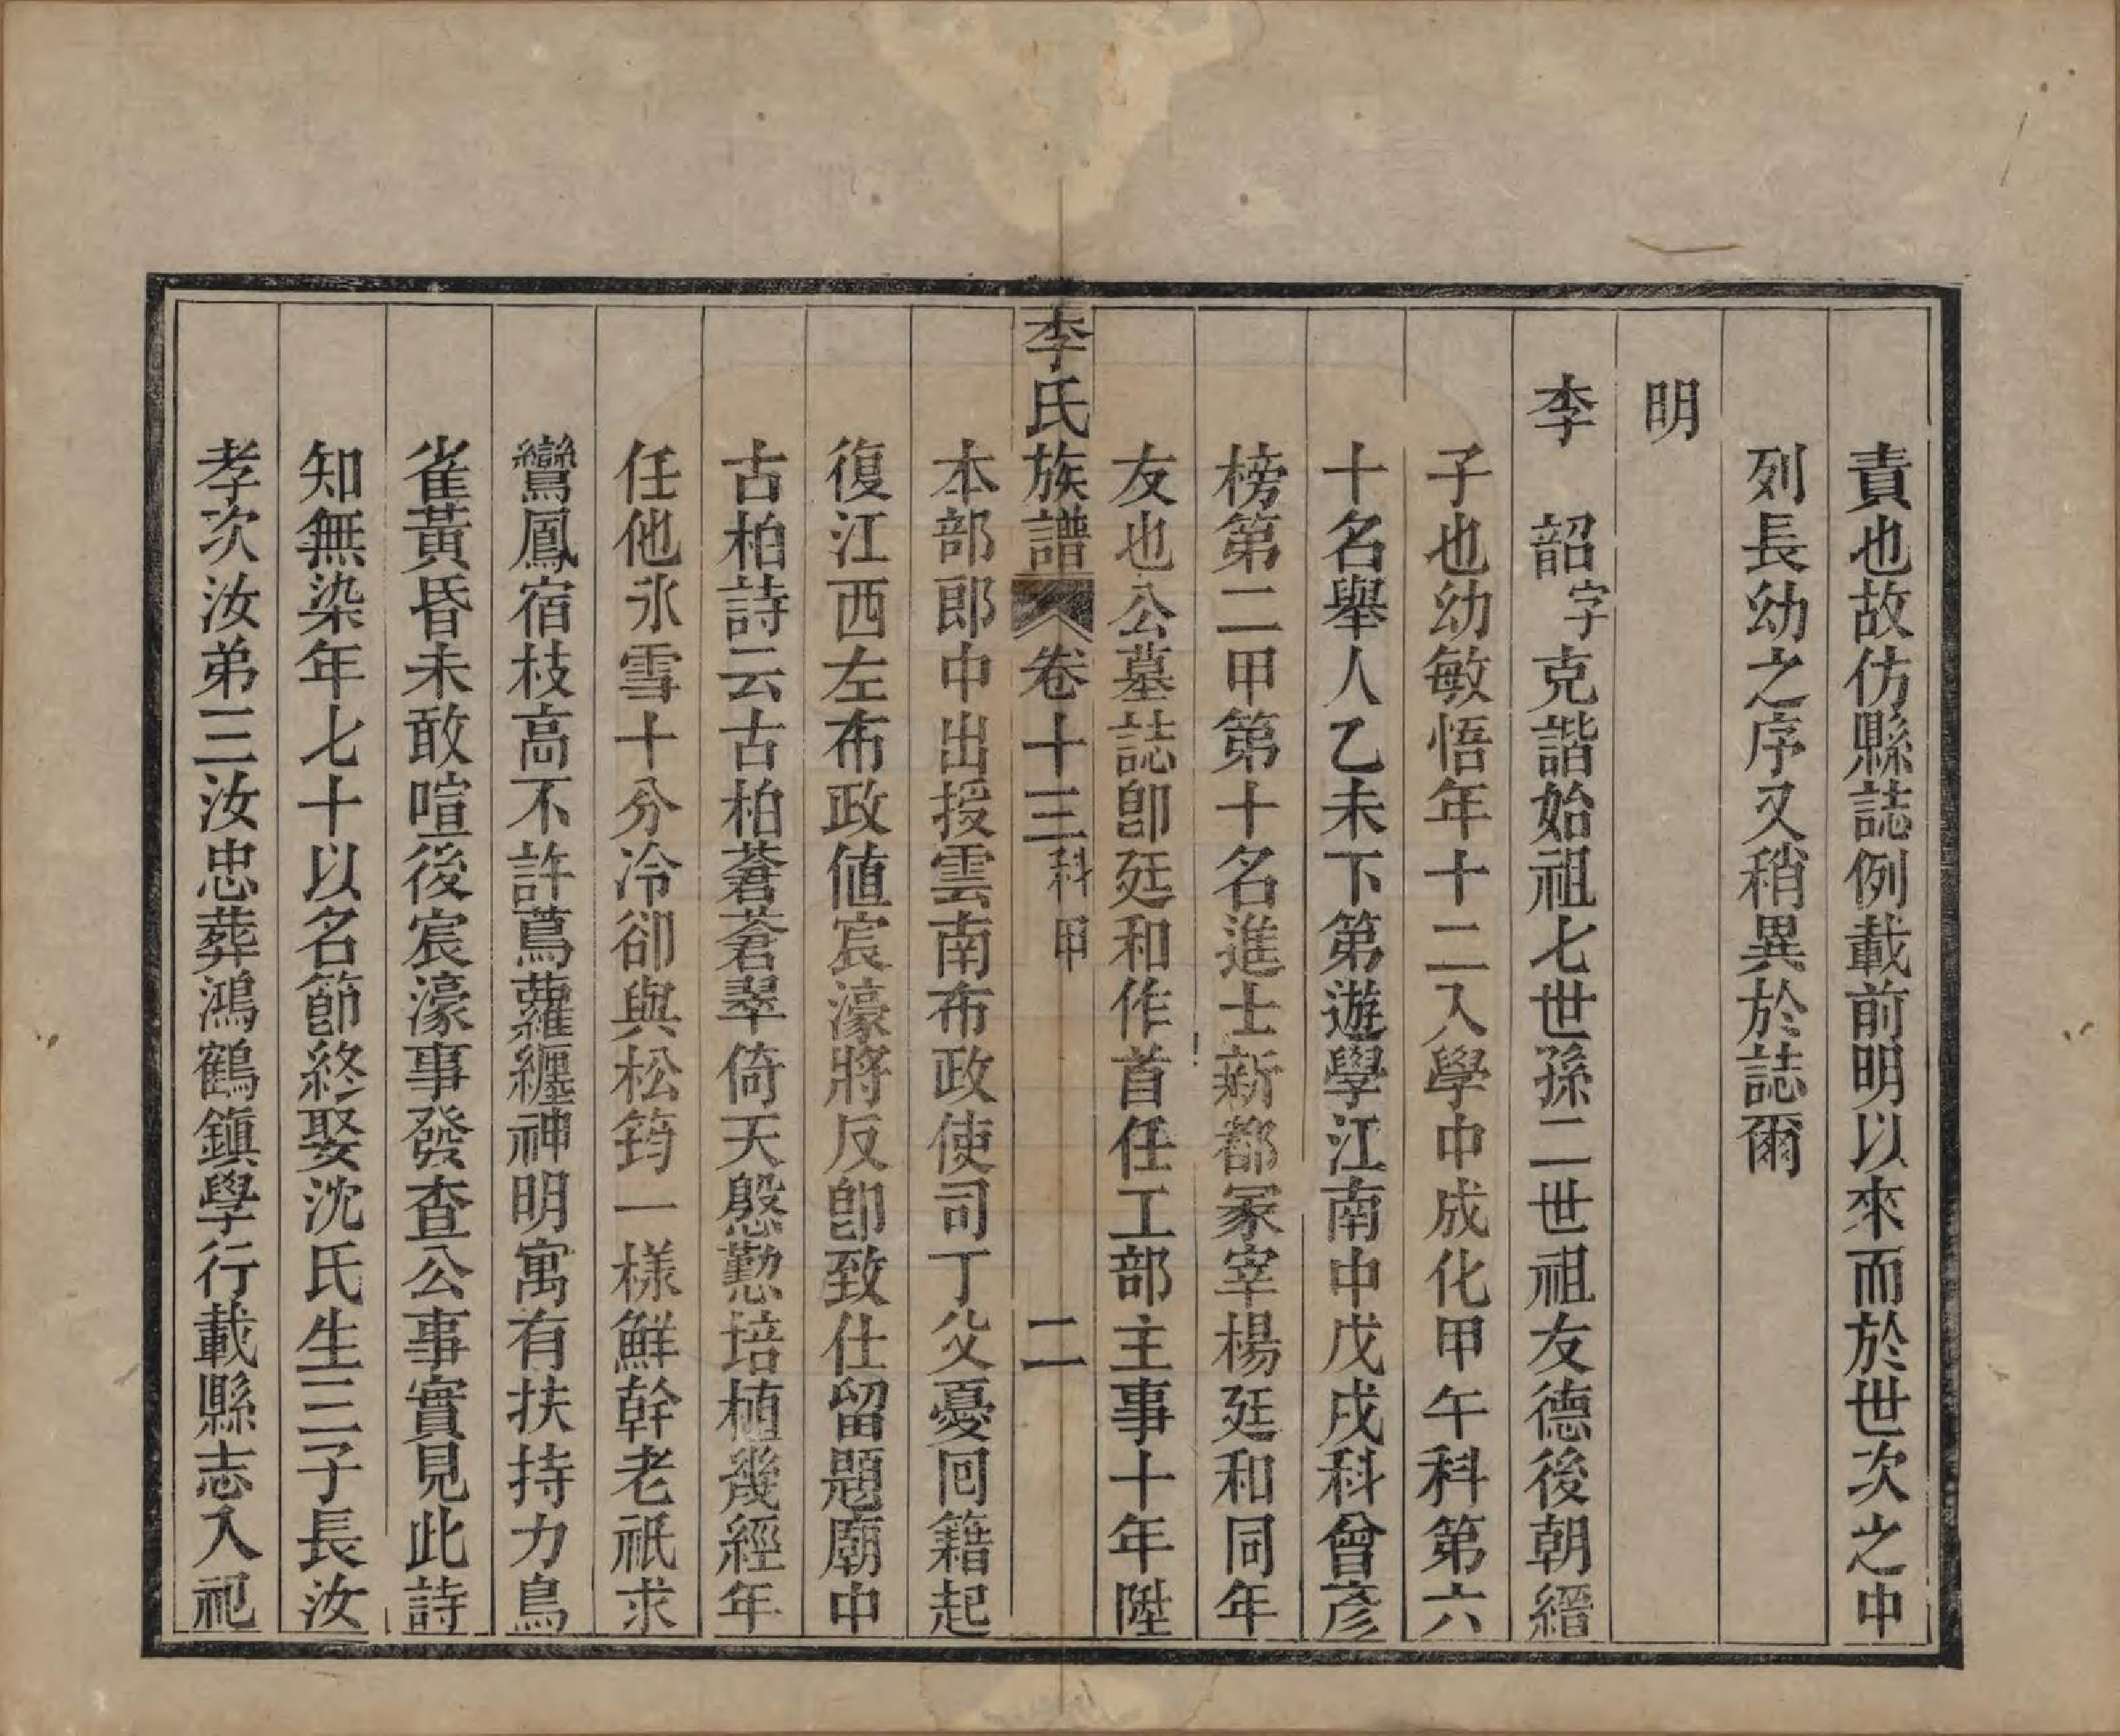 責也故仿縣誌例載前明以來而於世次之中
列長幼之序又稍異於誌爾
明
李　韶字克諧始祖七世孫二世祖友德後朝縉
子也幼敏悟年十二入學中成化甲午科第六
十名舉人乙未下第遊學江南中戊戌科曾彥
榜第二甲第十名進士新都冢宰楊廷和同年
友也公墓誌卽廷和作首任工部主事十年陞
李氏族譜　卷十三科甲　二
本部郎中出授雲南布政使司丁父憂囘籍起
復江西左布政値宸濠將反卽致仕留題廟中
古柏詩云古柏蒼蒼翠倚天慇懃培植幾經年
任他氷雪十分冷卻與松筠一樣鮮幹老祇求
鸞鳳宿枝高不許蔦蘿纏神明寓有扶持力鳥
雀黃昏未敢喧後宸濠事發查公事實見此詩
知無染年七十以名節終娶沈氏生三子長汝
孝次汝弟三汝忠葬鴻鶴鎮學行載縣志入祀